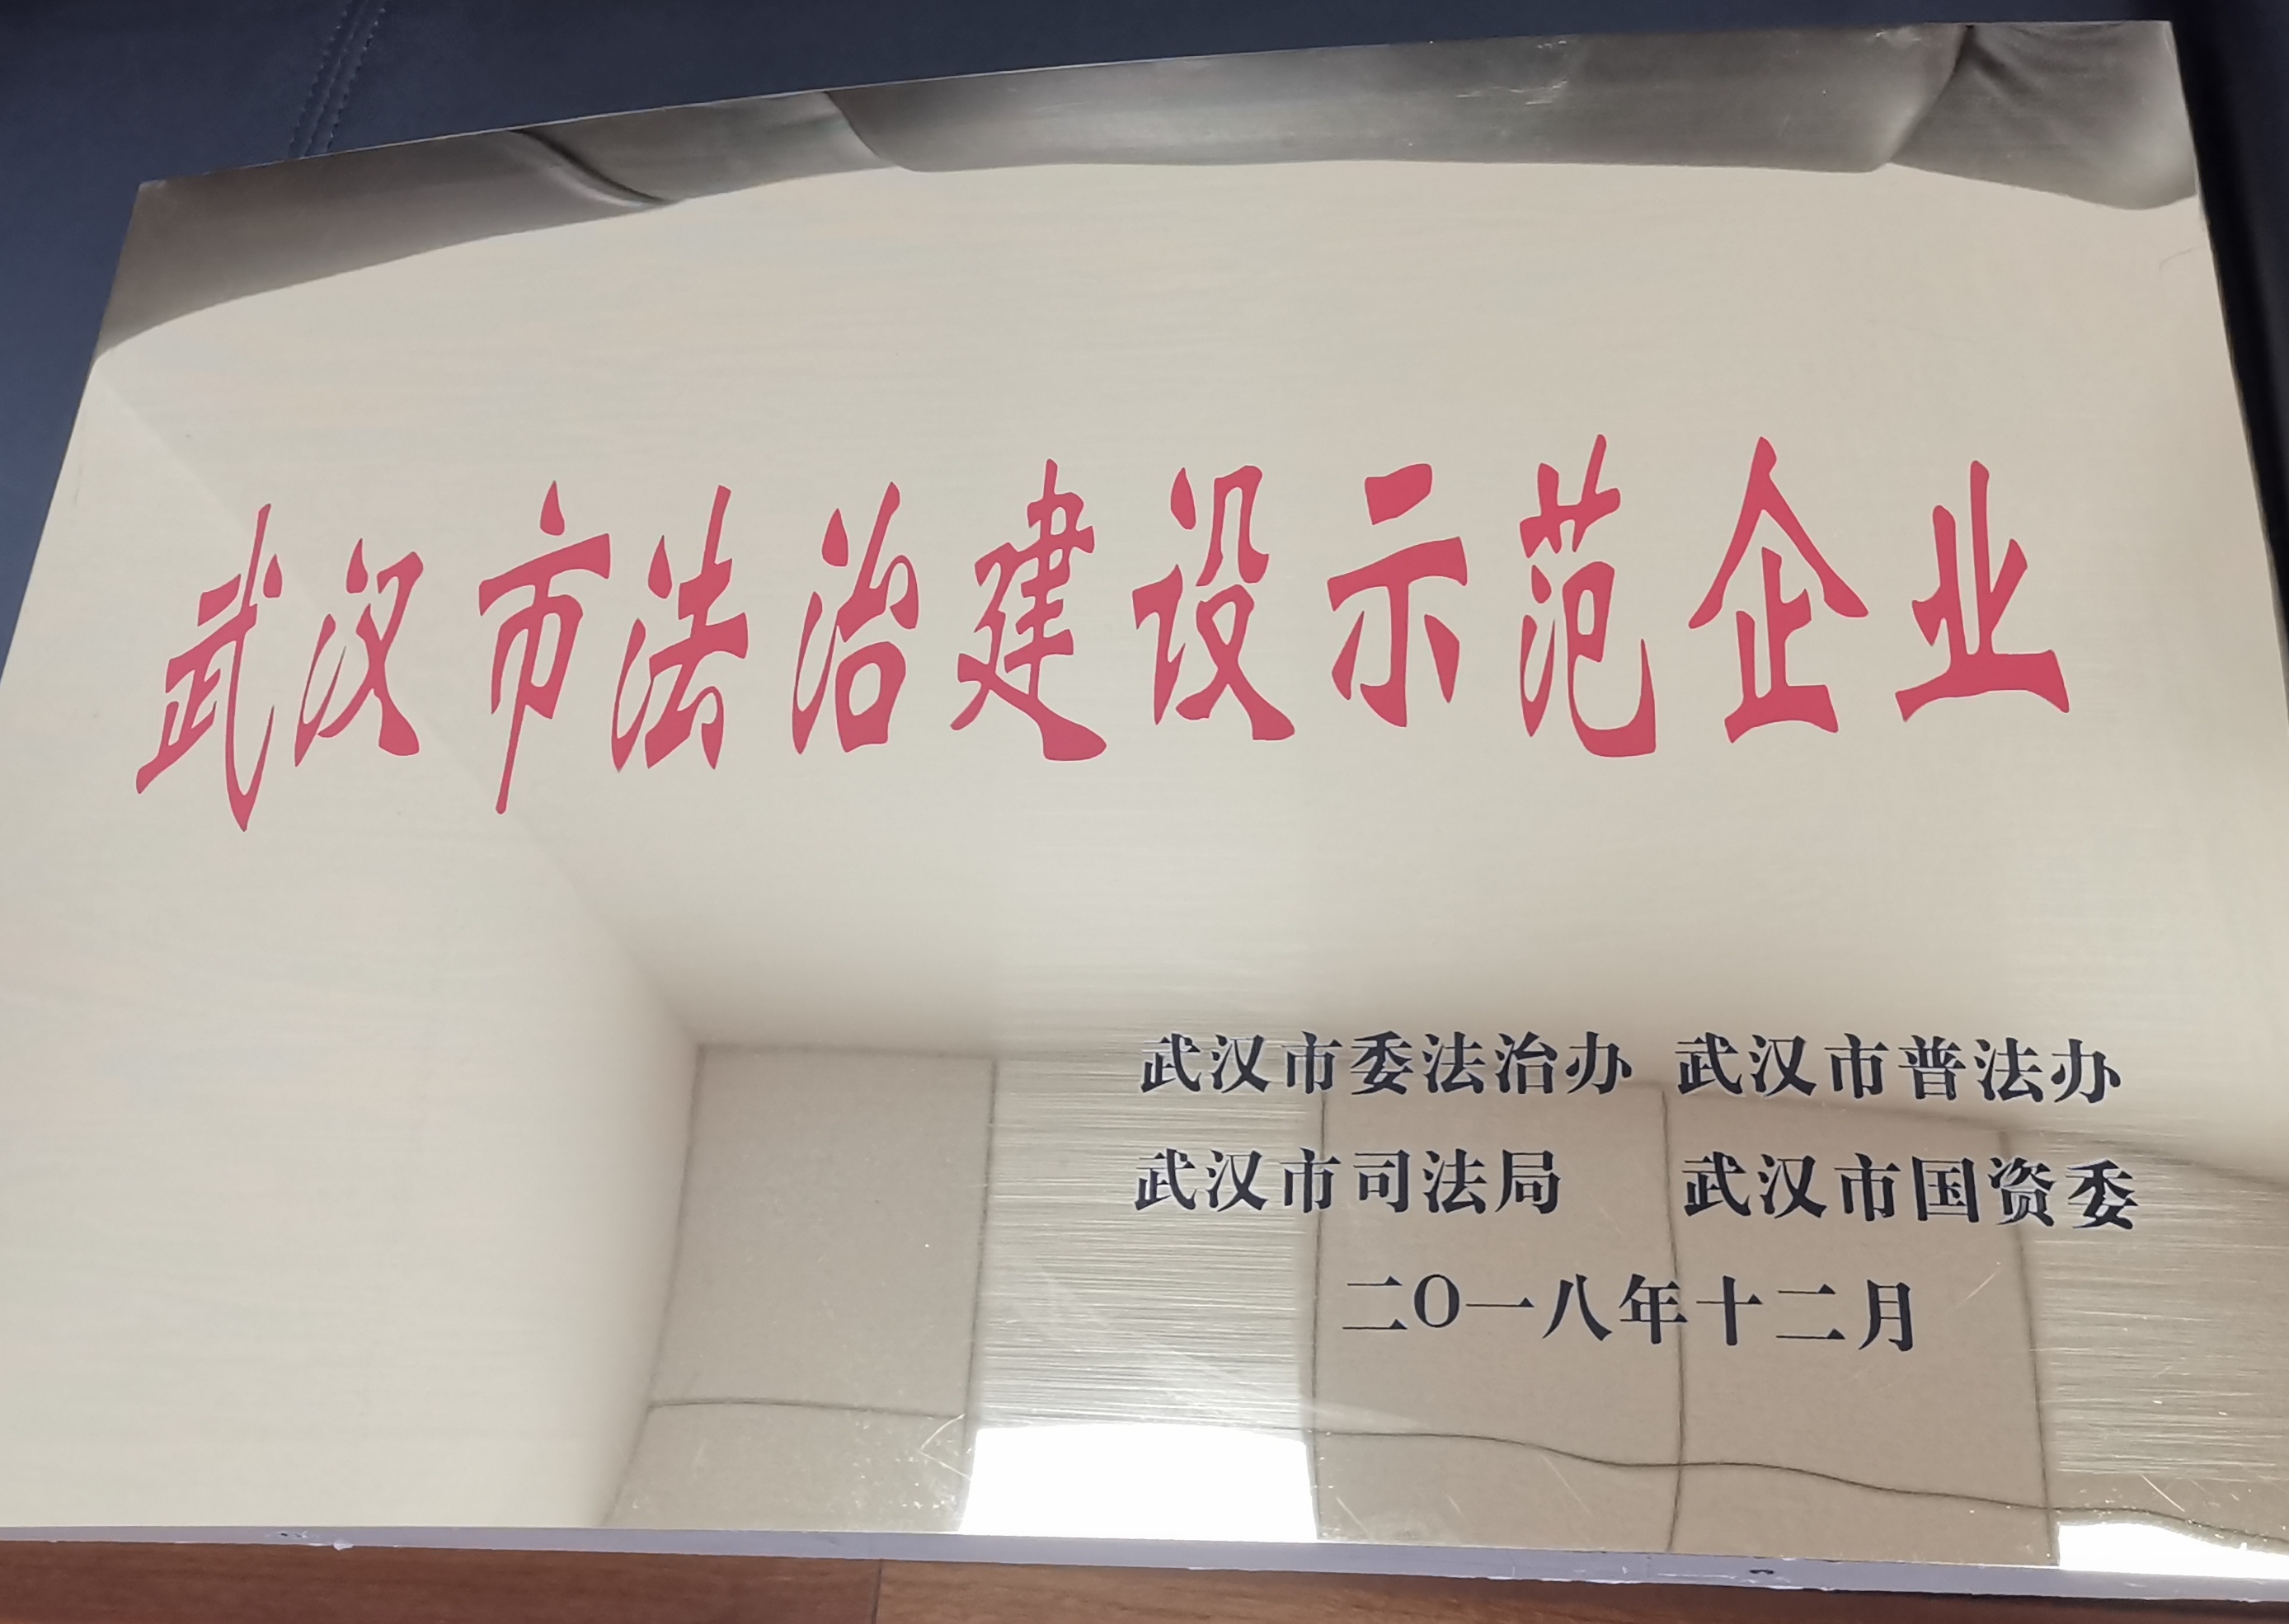 武汉市法治建设示范企业
武汉市委法治办 武汉市普法办
武汉市司法局 武汉市国资委
二〇一八年十二月